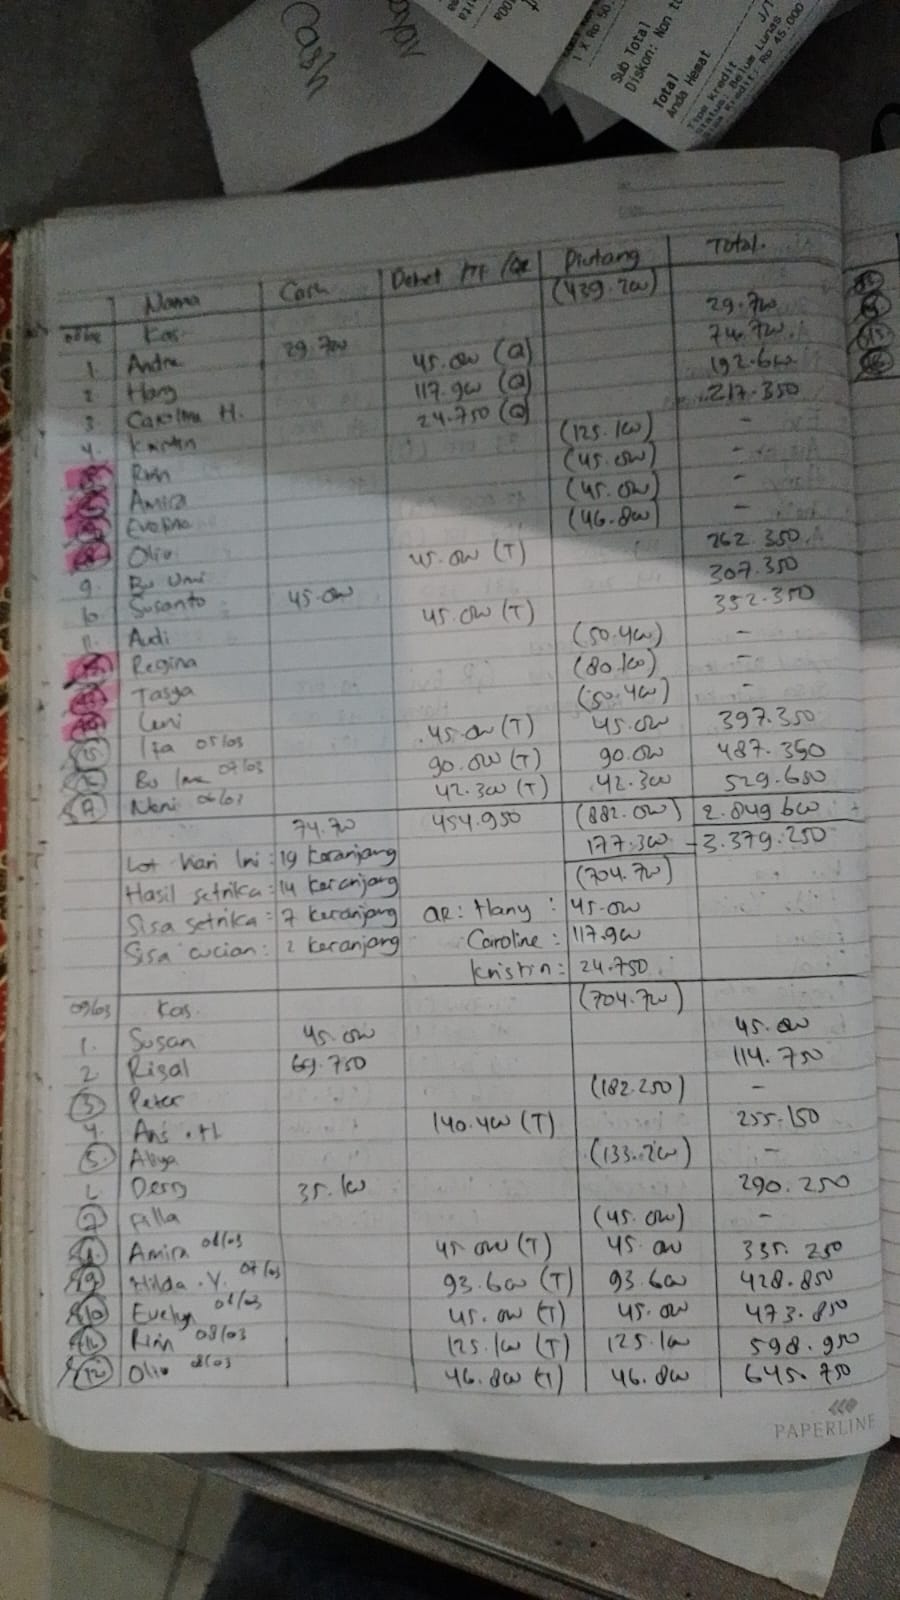 Cash
1 X Rp 50.
Sub Total
Diskon: Non
Total
Anda Hemat
J/T
Tipe kredit
Status: Belum Lunas
Rp 45.000
Nama Cash Debet /TF /QR Piutang Total.
08/03 Kas. (439.200)
1. Andre 29.700 29.700
2 Hany 45.000 (Q) 74.700.
3. Caroline H. 117.900 (Q) 192.600
4. Kristin 24.750 (Q) 217.350
Rini (125.100) -
Amira (45.000) -
Evelina (45.000) -
8 Olivi (46.800) -
9. Bu Umi 45.000 (T) 262.350
10 Susanto 45.000 307.350
11. Audi 45.000 (T) 352.350
Regina (50.400) -
Tasya (80.100) -
Leni (50.400) -
15 Ita 05/03 45.000 (T) 45.000 397.350
Bu Ima 07/03 90.000 (T) 90.000 487.350
17 Neni 06/03 42.300 (T) 42.300 529.650
74.700 454.950 (882.000) 2.849.600 +
Lot hari ini : 19 keranjang 177.300 - 3.379.250
Hasil setrika : 14 keranjang (704.700)
Sisa setrika : 7 keranjang QR : Hany : 45.000
Sisa cucian : 2 keranjang Caroline : 117.900
Kristin : 24.750
09/03 Kas. (704.700)
1. Susan 45.000 45.000
2 Rizal 69.750 114.750
3 Peter (182.250) -
4. Ani . H 140.400 (T) 255.150
5. Abya (133.200) -
6 Derry 35.100 290.250
7 Filla (45.000) -
8. Amira 08/03 45.000 (T) 45.000 335.250
9 Hilda . Y. 07/03 93.600 (T) 93.600 428.850
10 Evelyn 08/03 45.000 (T) 45.000 473.850
11 Rini 08/03 125.100 (T) 125.100 598.950
12 Olivi 08/03 46.800 (T) 46.800 645.750
PAPERLINE